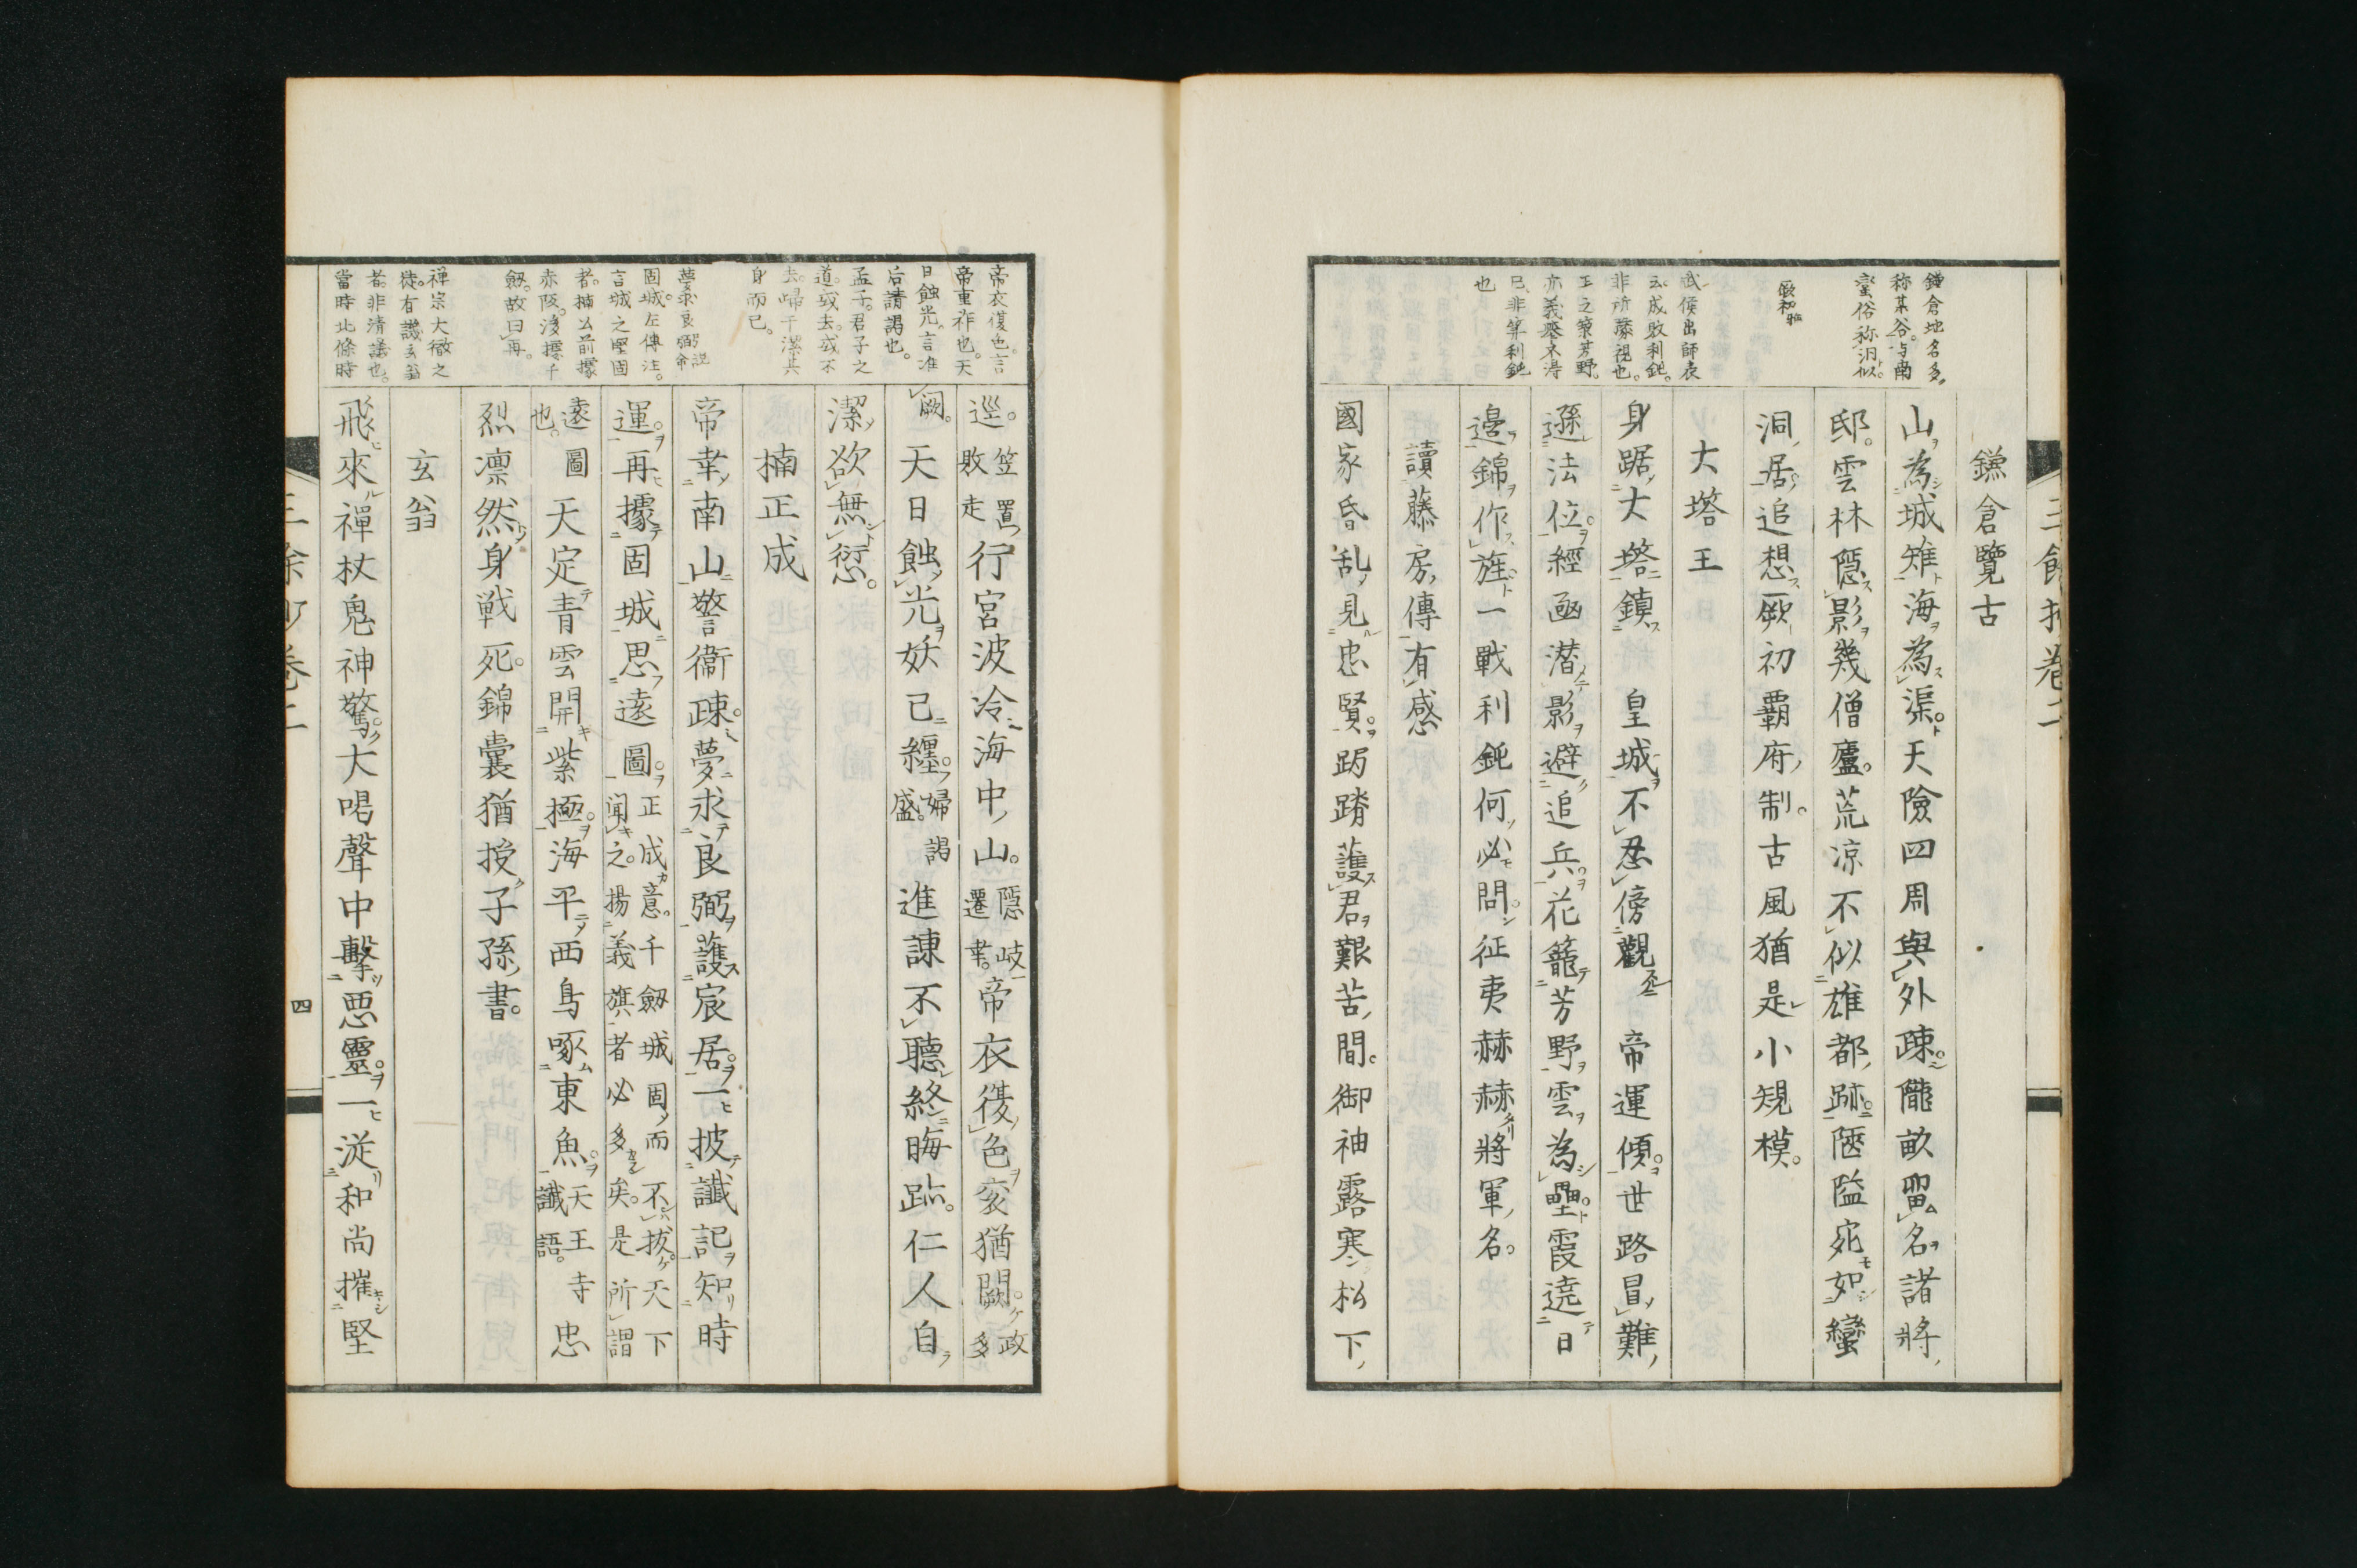 鎌倉覽古
山為城雉海為渠天險四周與外疎隴畝畱名諸將
邸雲林隱影幾僧廬荒凉不似雄都跡陋隘宛如蠻
洞居追想厥初覇府制古風猶是小規模
大塔王
身踞大塔鎮皇城不忍傍觀帝運傾世路冒難
遜法位經凾潜影避追兵花籠芳野雲為壘霞遶日
邉錦作旌一戰利鈍何必問征夷赫赫將軍名
讀藤房傳有感
國家昏乱見忠賢跼蹐護君艱苦間御袖露寒松下
鎌倉地名多
称某谷与南
蛮俗称洞似
武侯出師表
云成敗利鈍
非所豫視也
王之築芳野
亦義戀不得
已非算利鈍
也
三餘抄卷二
巡笠置敗走行宮波冷海中山隱岐遷幸帝衣復色衮猶闕政多
闕天日蝕光妖已纒婦謁盛進諫不聽終晦跡仁人自
潔欲無愆
楠正成
帝幸南山警衞疎夢求良弼護宸居一披讖記知時
運再據固城思遠圖正成意千劔城固而不拔天下聞之揚義旗者必多矣是所謂
遠圖也天定青雲開紫極海平西鳥啄東魚天王寺讖語忠
烈凛然身戦死錦嚢猶授子孫書
玄翁
飛來禪杖鬼神驚大喝聲中擊悪靈一從和尚摧堅
帝衣復色言
帝重祚也天
日蝕光言准
后請謁也
孟子君子之
道或去或不
去歸于潔其
身而已
夢求良弼説命
固城左傳注
言城之堅固
者楠公前據
赤阪後據千
劔故曰再
禅宗大徹之
徒有議玄翁
者非清議也
當時北條時
三餘抄卷二
四